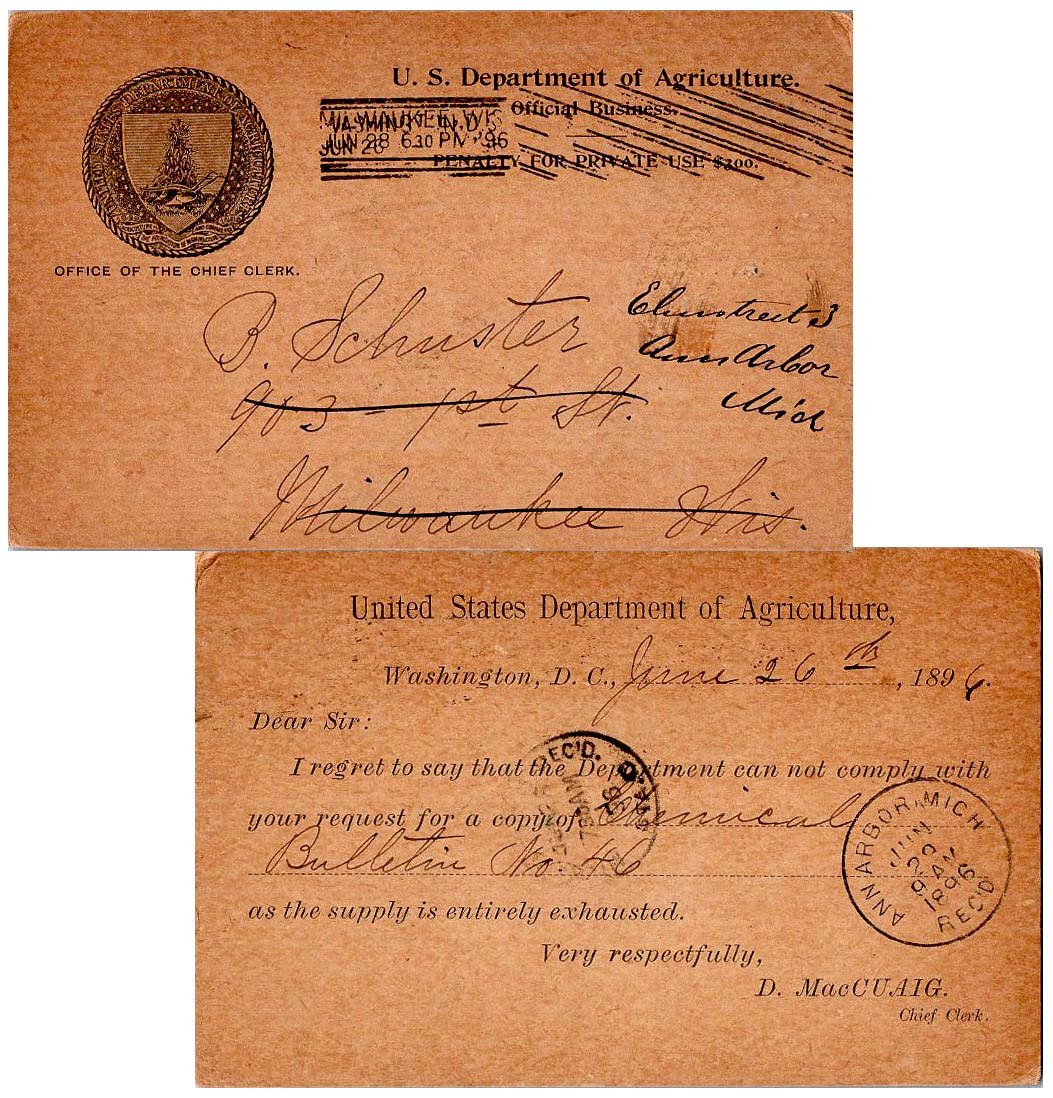 U. S. Department of Agriculture.
Official Business.
PENALTY FOR PRIVATE USE $300.
MILWAUKEE, WIS
JUN 28 6 30 PM '96
OFFICE OF THE CHIEF CLERK.
B. Schuster
903 - 1st St.
Milwaukee Wis.
Elmstreet 3
Ann Arbor
Mich
United States Department of Agriculture,
Washington, D. C., June 26th, 1896.
Dear Sir:
I regret to say that the Department can not comply with
your request for a copy of Chemical
Bulletin No. 46
as the supply is entirely exhausted.
Very respectfully,
D. MacCUAIG.
Chief Clerk.
REC'D.
ANN ARBOR, MICH
JUN
29
9 AM
1896
REC'D